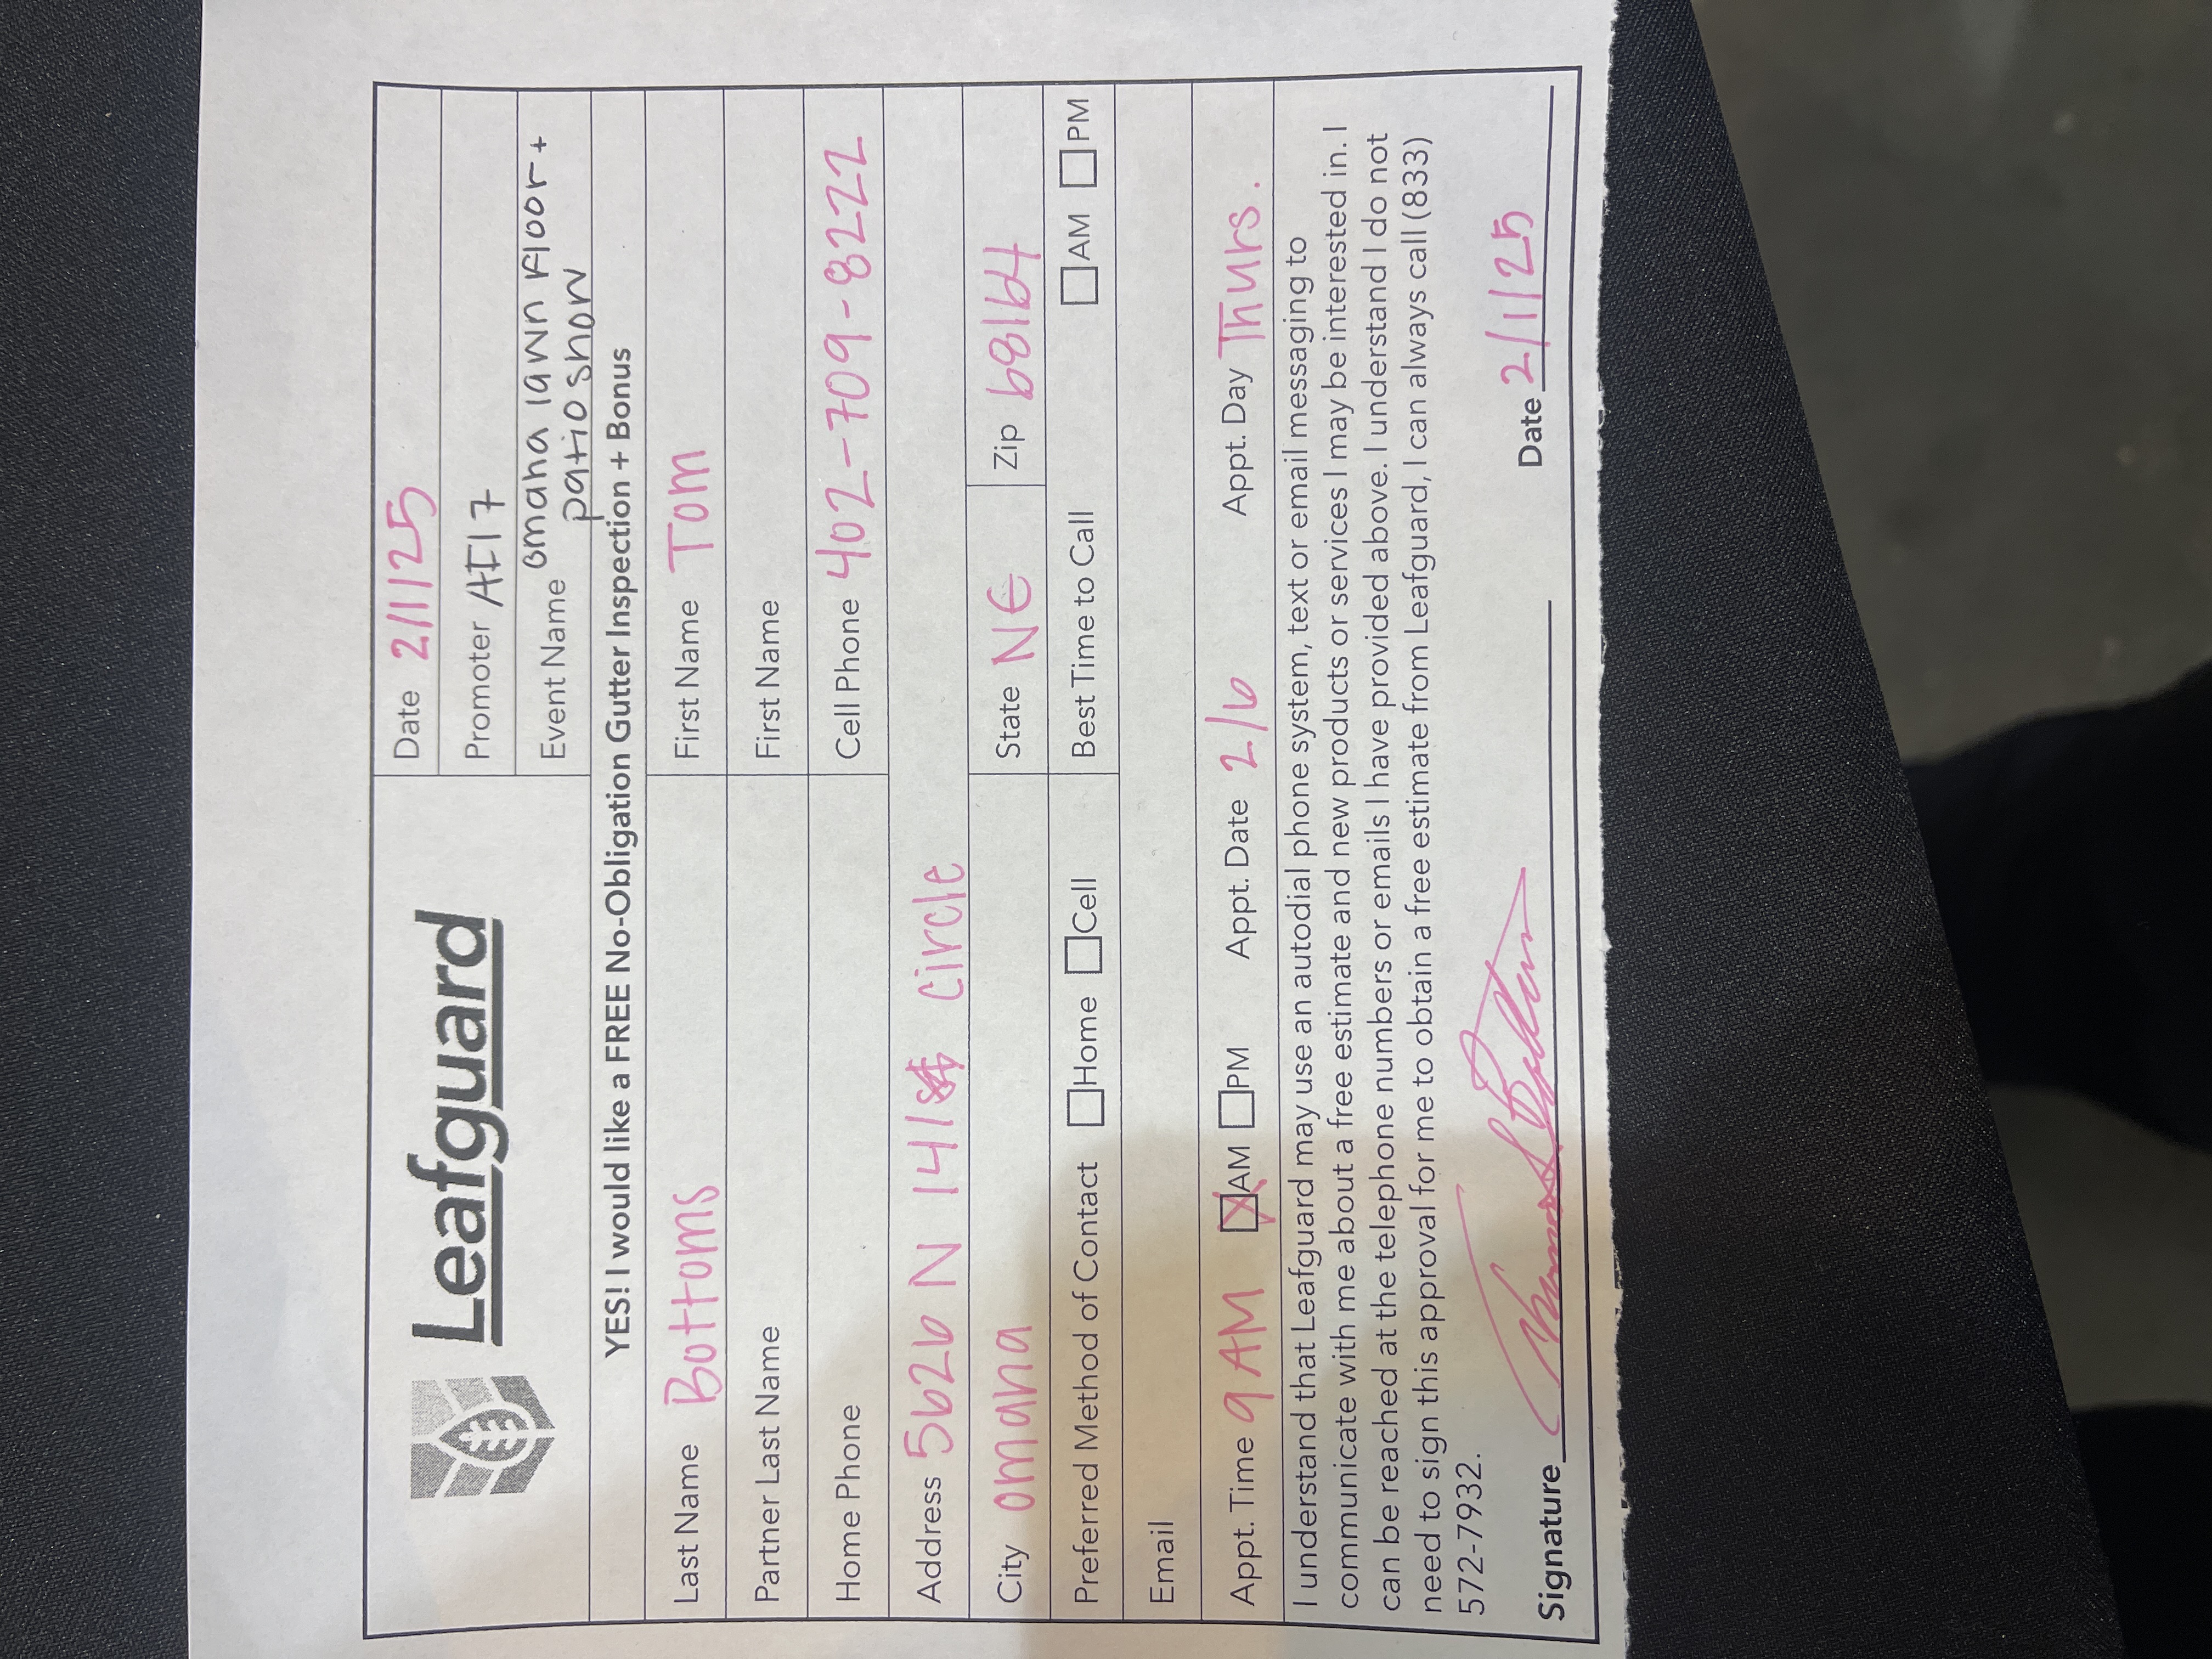 Leafguard
Date 2/1/25
Promoter AI17
Event Name Omaha lawn Floor +
patio show
YES! I would like a FREE No-Obligation Gutter Inspection + Bonus
Last Name Bottoms First Name Tom
Partner Last Name First Name
Home Phone Cell Phone 402-709-8222
Address 5626 N 141st circle
City Omaha State NE Zip 68164
Preferred Method of Contact Home Cell Best Time to Call AM PM
Email
Appt. Time 9 AM AM PM Appt. Date 2/6 Appt. Day Thurs.
I understand that Leafguard may use an autodial phone system, text or email messaging to
communicate with me about a free estimate and new products or services I may be interested in. I
can be reached at the telephone numbers or emails I have provided above. I understand I do not
need to sign this approval for me to obtain a free estimate from Leafguard, I can always call (833)
572-7932.
Signature Date 2/1/25